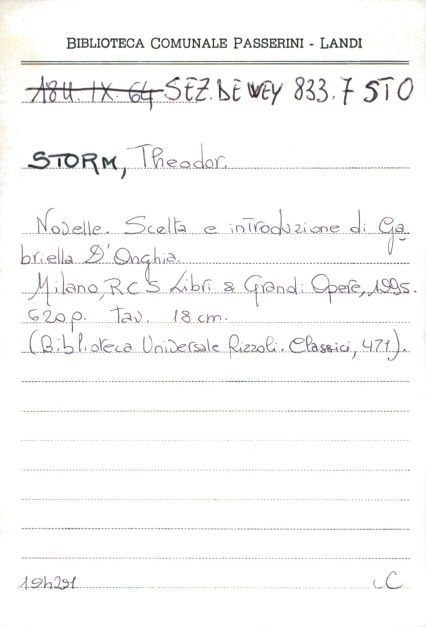 BIBLIOTECA COMUNALE PASSERINI - LANDI
18U. IX. 64 SEZ. DEWEY 833.7 STO
STORM, Theodor.
Novelle. Scelta e introduzione di Ga
briella D'Onghia.
Milano, RCS Libri & Grandi Opere, 1995.
620p. tav. 18 cm.
(Biblioteca Universale Rizzoli. Classici, 471).
194291
C